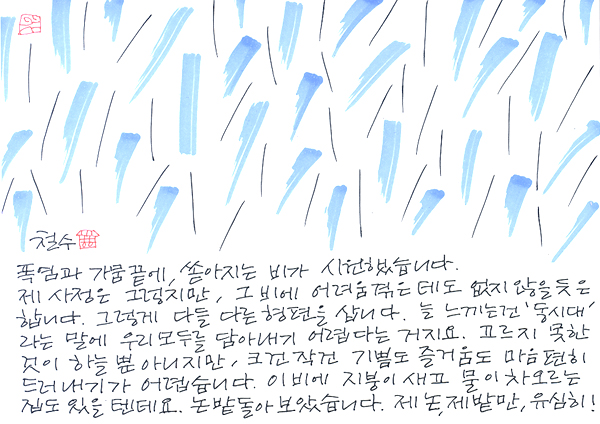 철수
폭염과 가뭄 끝에, 쏟아지는 비가 시원했습니다.
제 사정은 그렇지만, 그 비에 어려움 겪은 데도 없지 않을듯은
합니다. 그렇게 다들 다른 형편을 삽니다. 늘 느끼는건 '동시대'
라는 말에 우리 모두를 담아내기 어렵다는 거지요. 고르지 못한
것이 하늘 뿐 아니지만, 크건 작건 기쁨도 즐거움도 마음 편히
드러내기가 어렵습니다. 이 비에 지붕이 새고 물이 차오르는
집도 있을 텐데요. 논밭 돌아보았습니다. 제 논, 제 밭만, 유심히!